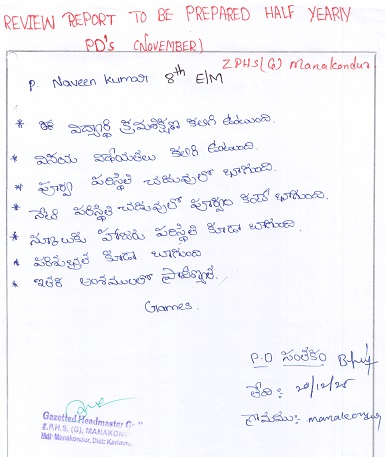 REVIEW REPORT TO BE PREPARED HALF YEARLY
PD's (NOVEMBER)
ZPHS(G) Manakondur
P. Naveen Kumar 8th E/M
* ఈ విద్యార్థి క్రమశిక్షణ కలిగి ఉంటుంది.
* వినయ విధేయతలు కలిగి ఉంటుంది.
* పూర్వ పరిస్థితి చదువులో బాగుంది.
* నేటి పరిస్థితి చదువులో పూర్వం కంటే బాగుంది.
* స్కూలుకు హాజరు పరిస్థితి కూడా బాగుంది
* పరిశుభ్రత కూడా బాగుంది
* ఇతర అంశములలో
Games.
P.D సంతకం
తేది: 20/12/25
గ్రామము: manakondur
Gazetted Headmaster
Z.P.H.S. (G), MANAKON
Mdl: Manakondur, Dist: Karimn